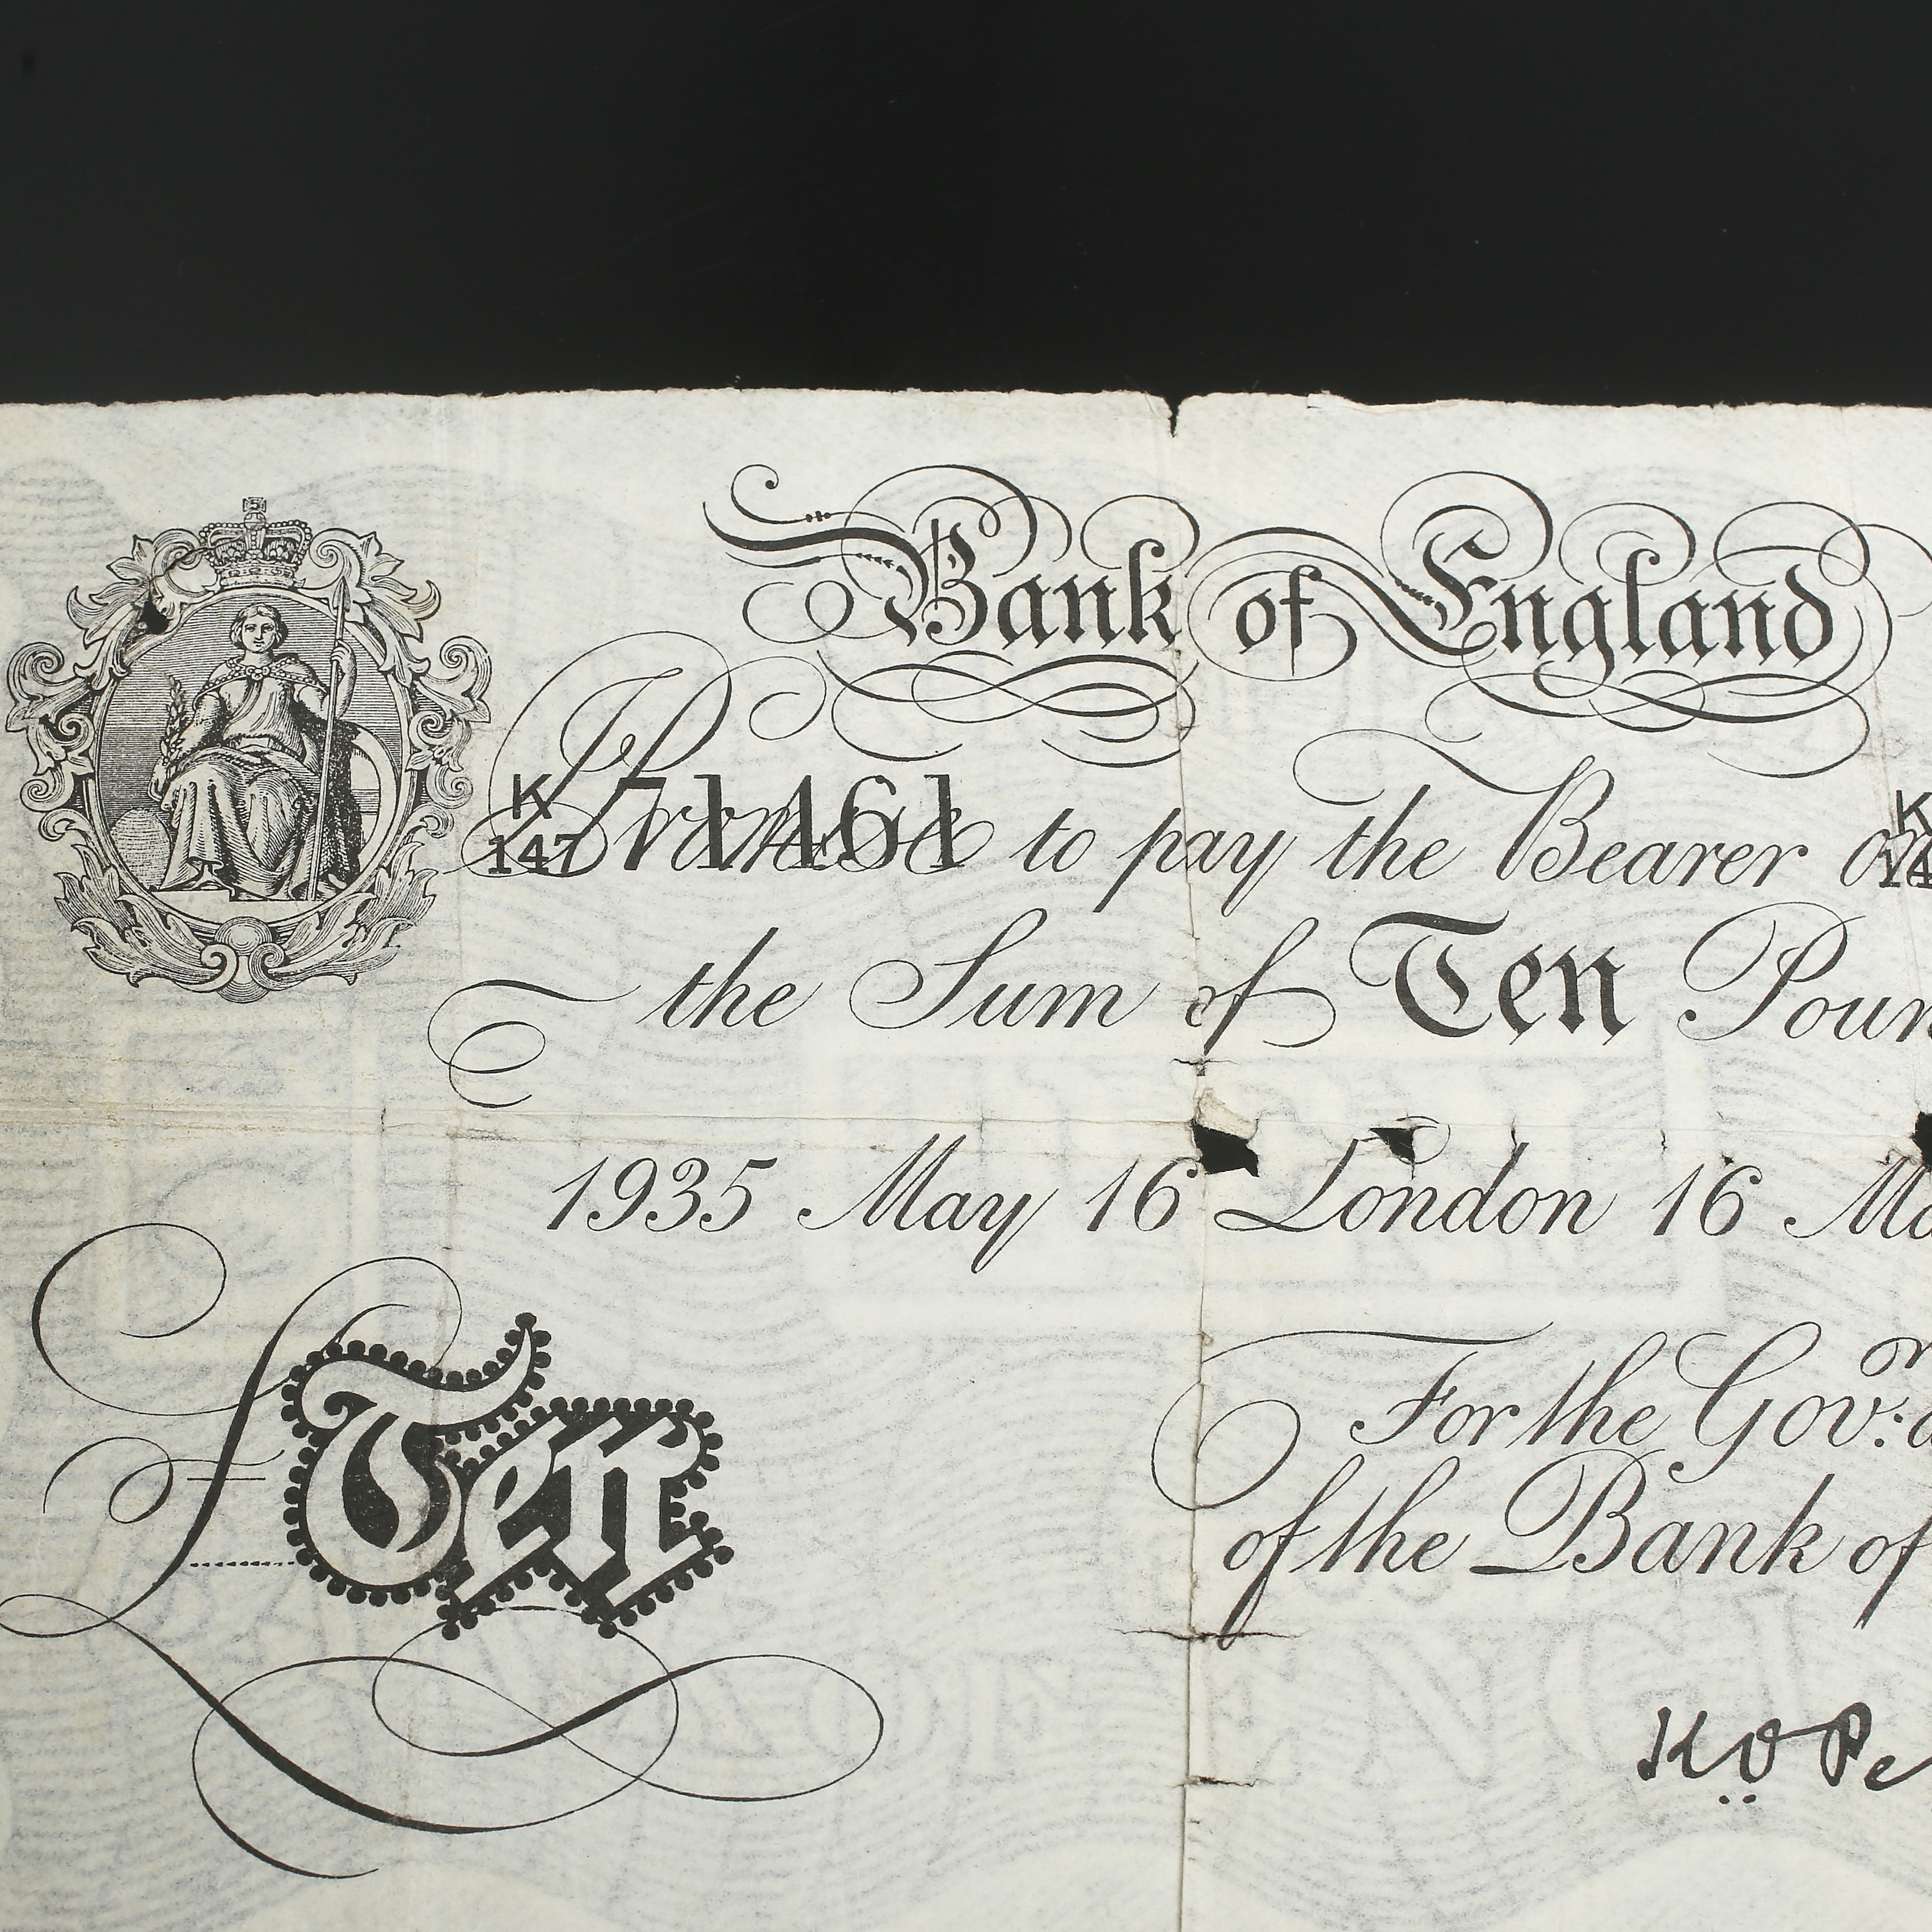 Bank of England
K 147 71461 I Promise to pay the Bearer on K 14
the Sum of Ten Poun
1935 May 16 London 16 Ma
For the Gov.or
of the Bank of
£Ten
K O Pe